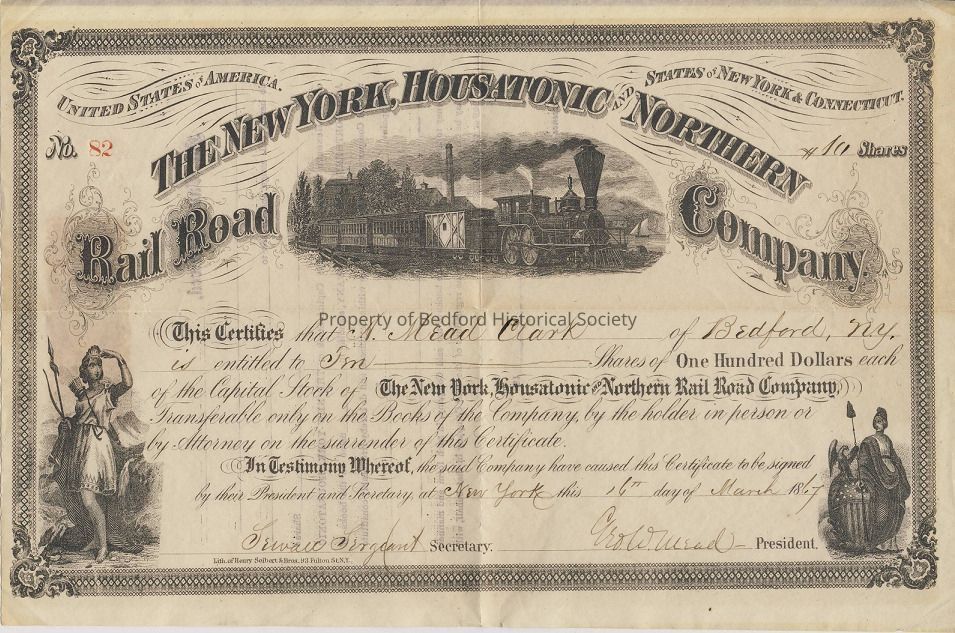 UNITED STATES OF AMERICA.
STATES OF NEW YORK & CONNECTICUT.
No. 82
# 10 Shares
THE NEW YORK, HOUSATONIC AND NORTHERN
Rail Road Company.
Property of Bedford Historical Society
This Certifies that A. Mead Clark of Bedford, NY.
is entitled to Ten Shares of One Hundred Dollars each
of the Capital Stock of The New York, Housatonic and Northern Rail Road Company,
Transferable only on the Books of the Company, by the holder in person or
by Attorney on the surrender of this Certificate.
In Testimony Whereof, the said Company have caused this Certificate to be signed
by their President and Secretary, at New York this 16th day of March 1867
Sewall Sergeant Secretary. Geo W Mead President.
Lith. of Henry Seibert & Bros. 93 Fulton St. N.Y.